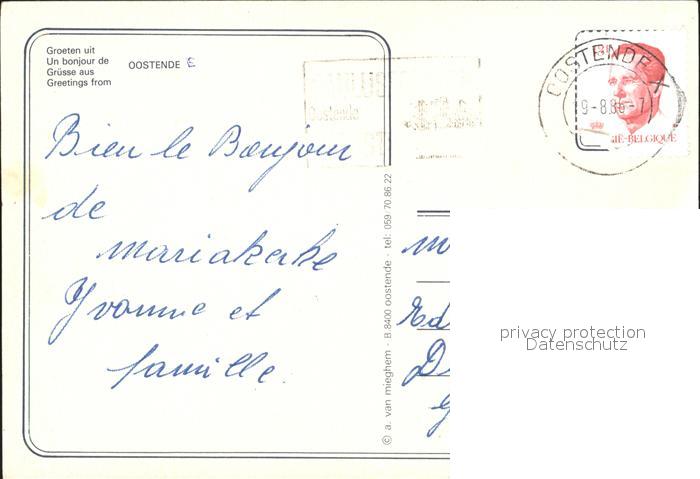 Groeten uit
Un bonjour de
Grüsse aus
Greetings from
OOSTENDE E
Oostende
OOSTENDE X
9-8.86-7
BELGIQUE
Bien le Bonjour
de
Mariakerke
Yvonne et
famille.
© a. van mieghem - B 8400 oostende - tel: 059 70.86.22
M
Ed
D
privacy protection
Datenschutz